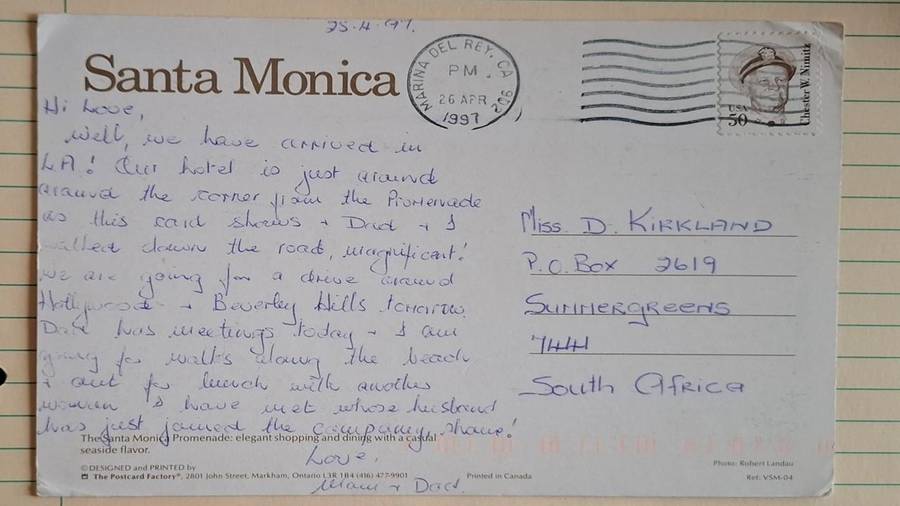 25.4.97.
Santa Monica
MARINA DEL REY, CA 902
PM
26 APR
1997
USA
50
Chester W. Nimitz
Hi Love,
Well, we have arrived in
LA! Our hotel is just around
around the corner from the Promenade
as this card shows + Dad + I
walked down the road, magnificent!
We are going for a drive around
Hollywood + Beverley Hills tomorrow.
Dad has meetings today + I am
going for walks along the beach
+ out for lunch with another
woman I have met whose husband
has just joined the company, shame!
Love,
Mom + Dad.
Miss. D. KIRKLAND
P.O. Box 2619
SUMMERGREENS
7441
South Africa
The Santa Monica Promenade: elegant shopping and dining with a casual
seaside flavor.
© DESIGNED and PRINTED by
The Postcard Factory®, 2801 John Street, Markham, Ontario L3R 1B4 (416) 477-9901
Printed in Canada
Photo: Robert Landau
Ref: VSM-04